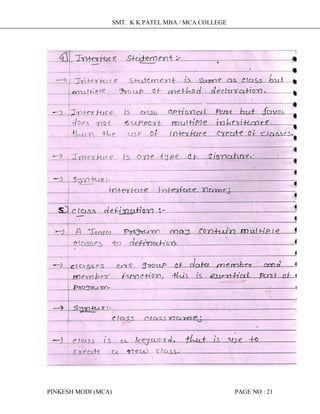 SMT. K K PATEL MBA / MCA COLLEGE
4) Interface Statement :-
→ Interface Statement is same as class but
multiple Group of method declaration.
→ Interface is also optional Part but Java
does not support multiple inheritance.
than the use of interface create of classes.
→ Interface is one type of Signature.
→ Syntax:-
interface interface name;
5) class defination :-
→ A Java Program may contain multiple
classes to defination.
→ classes are group of data member and
member function, this is essential Part of
Program.
→ Syntax:-
class classname;
→ class is a keyword. that is use to
create a new class.
PINKESH MODI (MCA) PAGE NO : 21